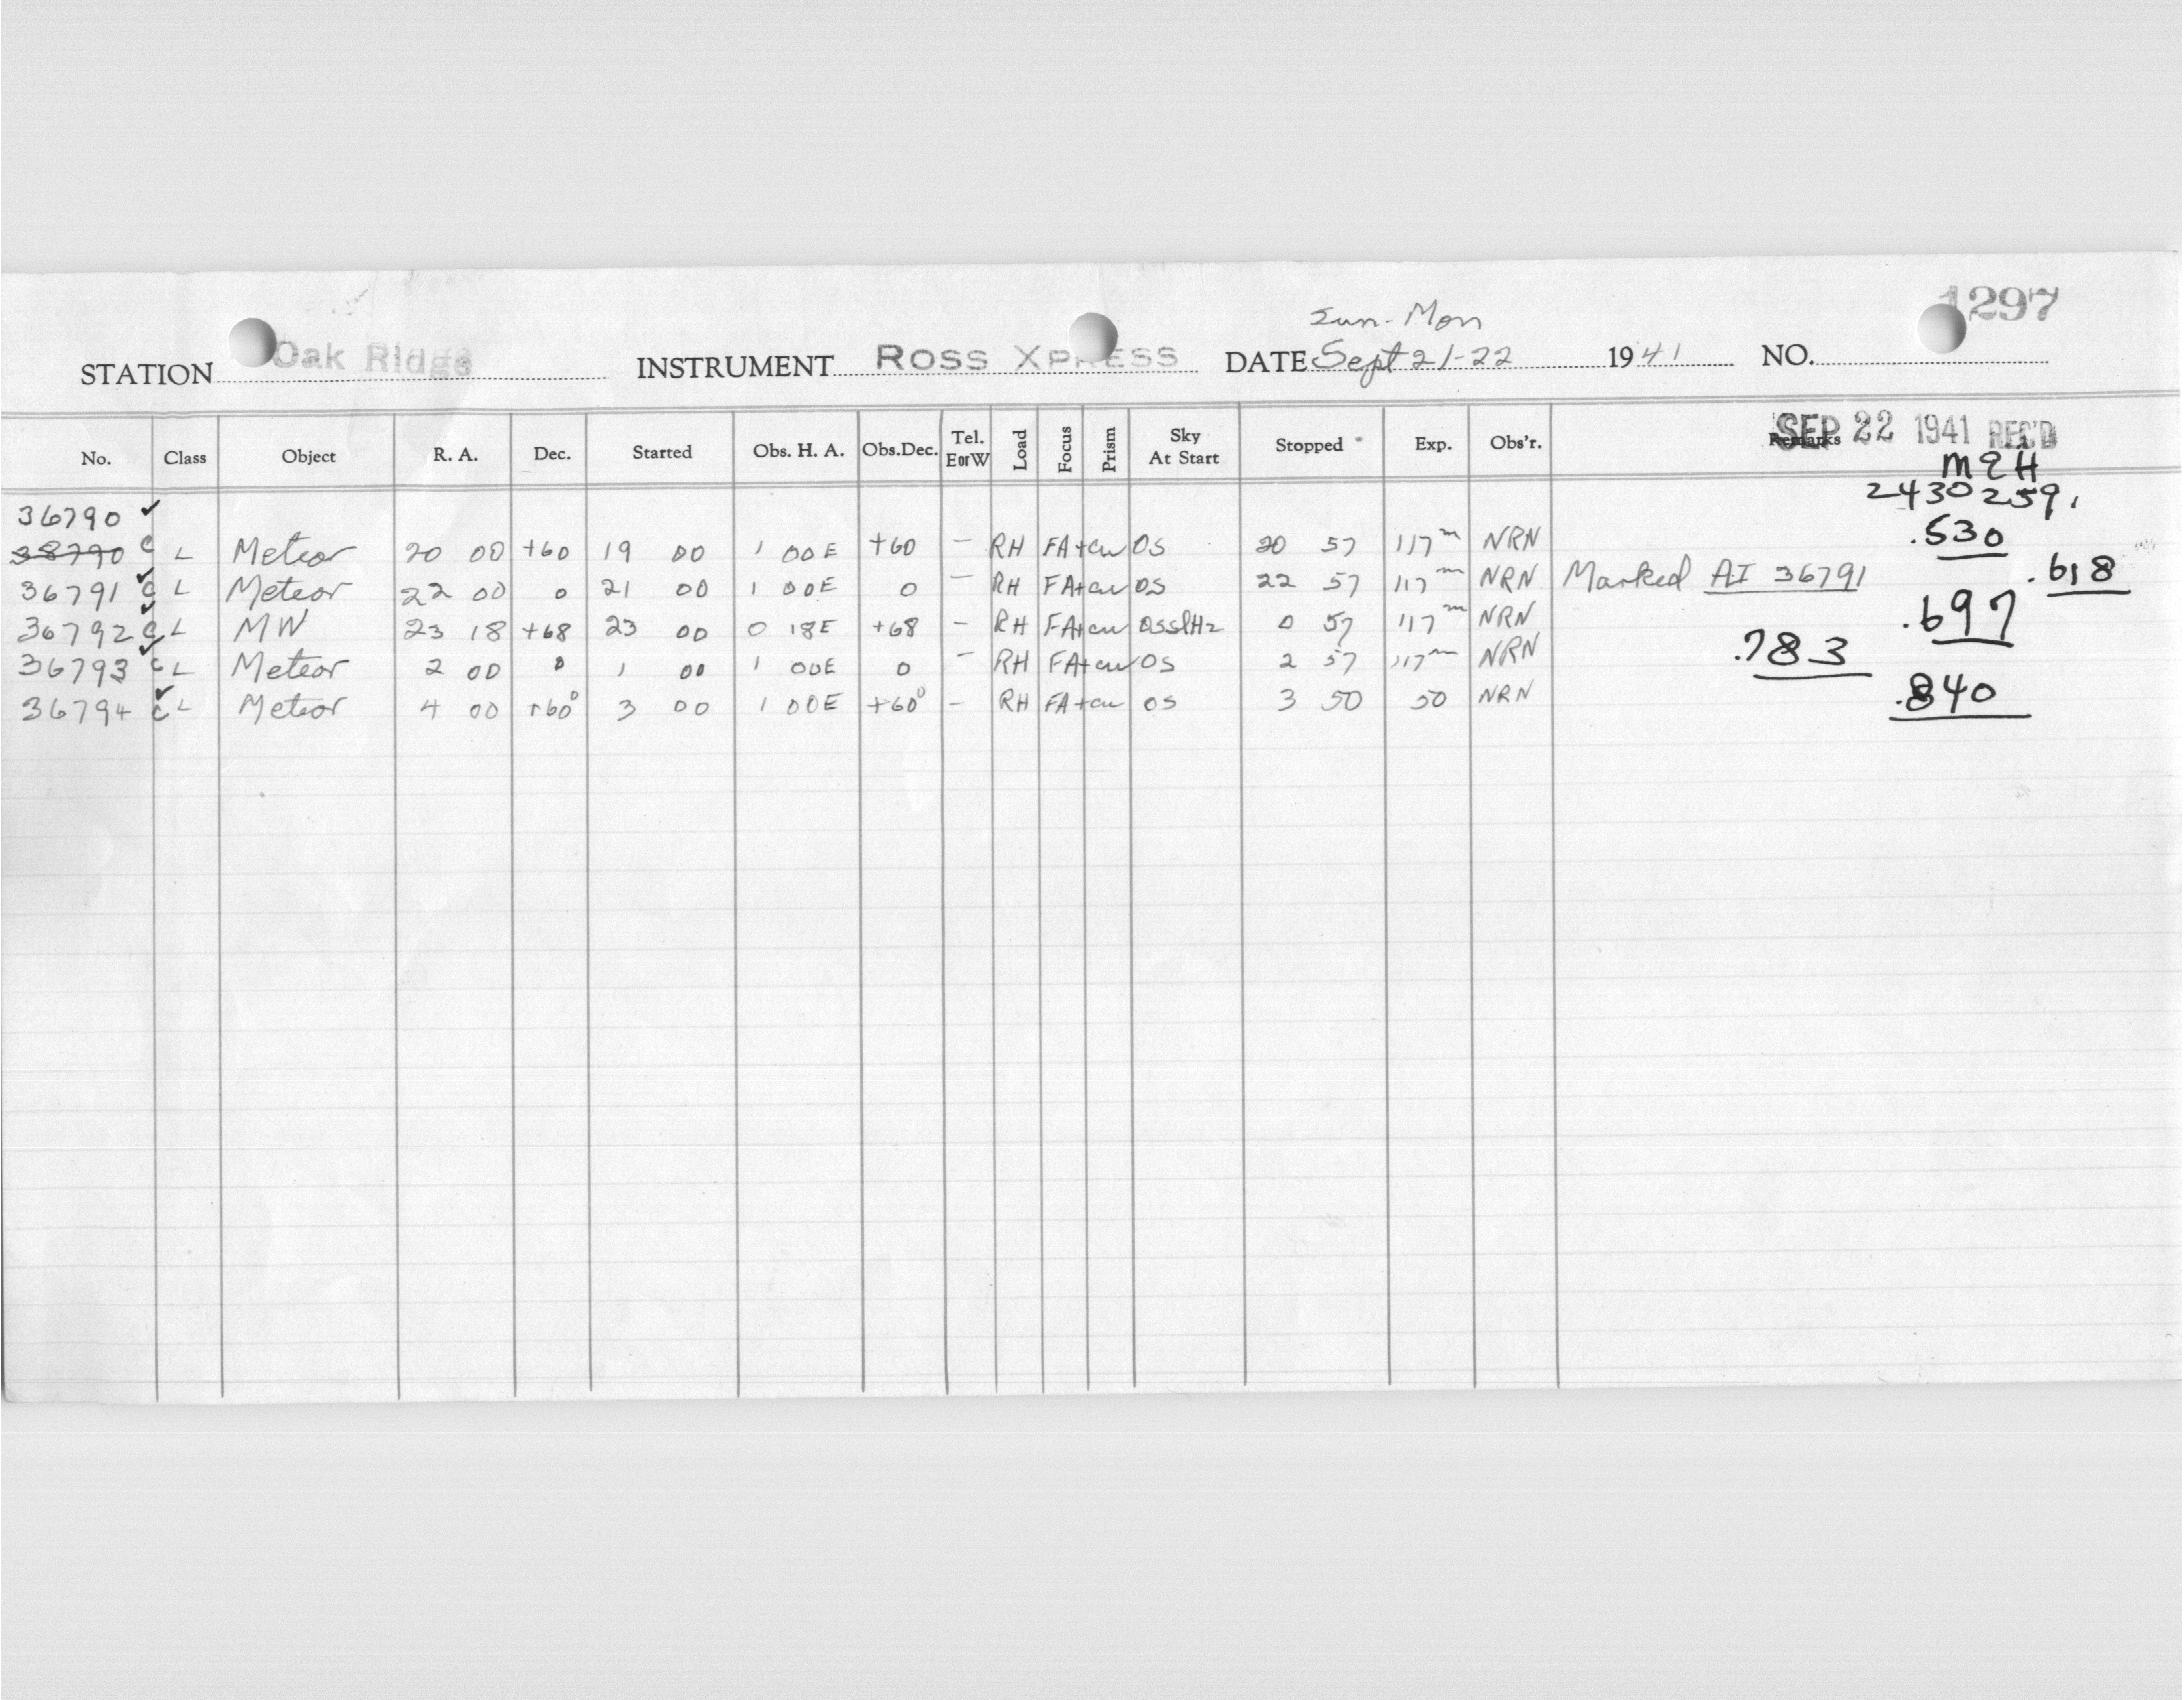 1297
Sun-Mon
STATION Oak Ridge INSTRUMENT ROSS XPRESS DATE Sept 21-22 1941 NO.
SEP 22 1941 REC'D
No. Class Object R. A. Dec. Started Obs. H. A. Obs.Dec. Tel. E or W Load Focus Prism Sky At Start Stopped Exp. Obs'r. Remarks
2430259.
36790 ✓
.530
38790 c L Meteor 20 00 +60 19 00 1 00E +60 – RH FA+cw OS 20 57 117m NRN
.618
36791 ✓ c L Meteor 22 00 0 21 00 1 00E 0 – RH FA+cw OS 22 57 117m NRN Marked AI 36791
.697
36792 ✓ c L MW 23 18 +68 23 00 0 18E +68 – RH FA+cw OSslHz 0 57 117m NRN
.783
36793 ✓ c L Meteor 2 00 0 1 00 1 00E 0 – RH FA+cw OS 2 57 117m NRN
.840
36794 ✓ c L Meteor 4 00 +60° 3 00 1 00E +60° – RH FA+cw OS 3 50 50 NRN